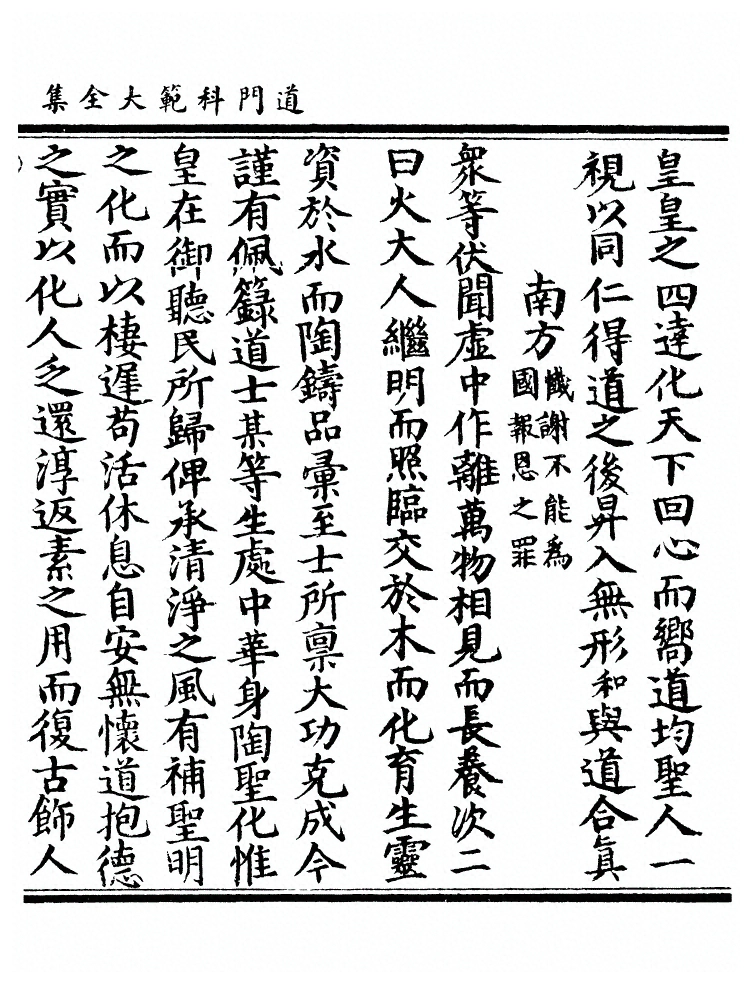 道門科範大全集
皇皇之四達化天下回心而嚮道均聖人一
視以同仁得道之後昇入無形和與道合真
南方
懴謝不能為
國報恩之罪
衆等伏聞虛中作離萬物相見而長養次二
曰火大人繼明而照臨交於木而化育生靈
資於水而陶鑄品彙至士所禀大功克成今
謹有佩籙道士某等生處中華身陶聖化惟
皇在御聽民所歸俾承清淨之風有補聖明
之化而以棲遲苟活休息自安無懷道抱德
之實以化人乏還淳返素之用而復古飾人